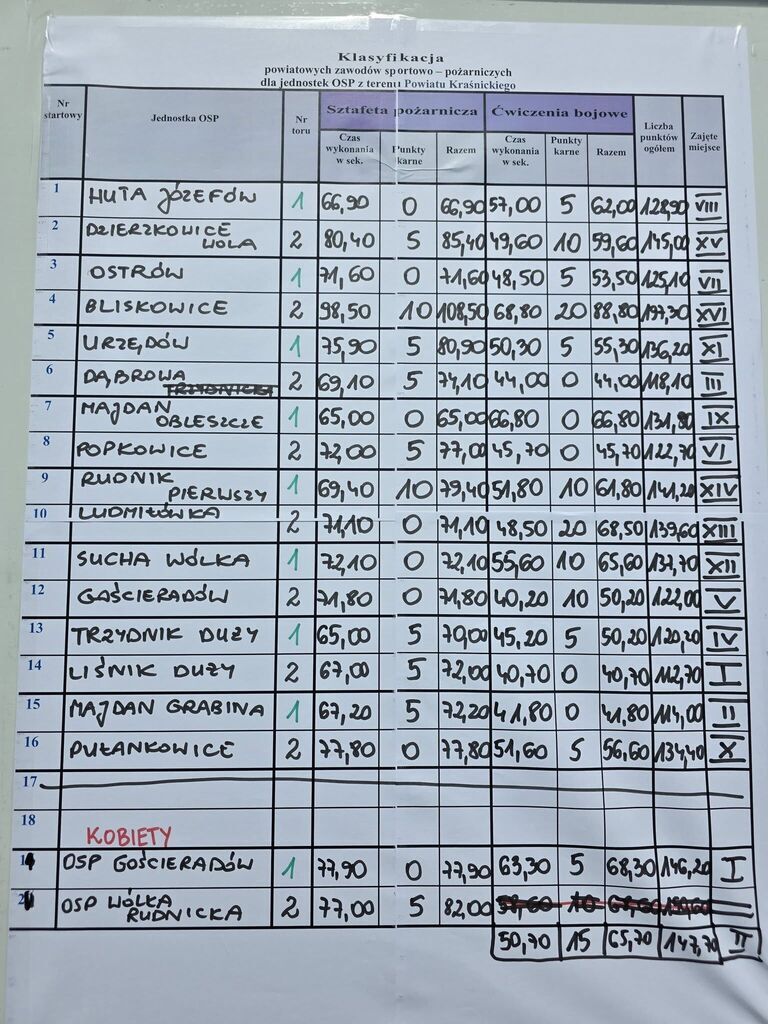 Klasyfikacja
powiatowych zawodów sportowo – pożarniczych
dla jednostek OSP z terenu Powiatu Kraśnickiego
Nr startowy Jednostka OSP Nr toru Sztafeta pożarnicza Ćwiczenia bojowe Liczba punktów ogółem Zajęte miejsce
Czas wykonania w sek. Punkty karne Razem Czas wykonania w sek. Punkty karne Razem
1 HUTA JÓZEFÓW 1 66,90 0 66,90 57,00 5 62,00 128,90 VIII
2 DZIERZKOWICE WOLA 2 80,40 5 85,40 49,60 10 59,60 145,00 XV
3 OSTRÓW 1 71,60 0 71,60 48,50 5 53,50 125,10 VII
4 BLISKOWICE 2 98,50 10 108,50 68,80 20 88,80 197,30 XVI
5 URZĘDÓW 1 75,90 5 80,90 50,30 5 55,30 136,20 XI
6 DĄBROWA 2 69,10 5 74,10 44,00 0 44,00 118,10 III
7 MAJDAN OBLESZCZE 1 65,00 0 65,00 66,80 0 66,80 131,80 IX
8 POPKOWICE 2 72,00 5 77,00 45,70 0 45,70 122,70 VI
9 RUDNIK PIERWSZY 1 69,40 10 79,40 51,80 10 61,80 141,20 XIV
10 LUDMIŁÓWKA 2 71,10 0 71,10 48,50 20 68,50 139,60 XIII
11 SUCHA WÓLKA 1 72,10 0 72,10 55,60 10 65,60 137,70 XII
12 GOŚCIERADÓW 2 71,80 0 71,80 40,20 10 50,20 122,00 V
13 TRZYDNIK DUŻY 1 65,00 5 70,00 45,20 5 50,20 120,20 IV
14 LIŚNIK DUŻY 2 67,00 5 72,00 40,70 0 40,70 112,70 I
15 MAJDAN GRABINA 1 67,20 5 72,20 41,80 0 41,80 114,00 II
16 PUŁANKOWICE 2 77,80 0 77,80 51,60 5 56,60 134,40 X
17
18
KOBIETY
OSP GOŚCIERADÓW 1 77,90 0 77,90 63,30 5 68,30 146,20 I
OSP WÓLKA RUDNICKA 2 77,00 5 82,00
50,70 15 65,70 147,70 II